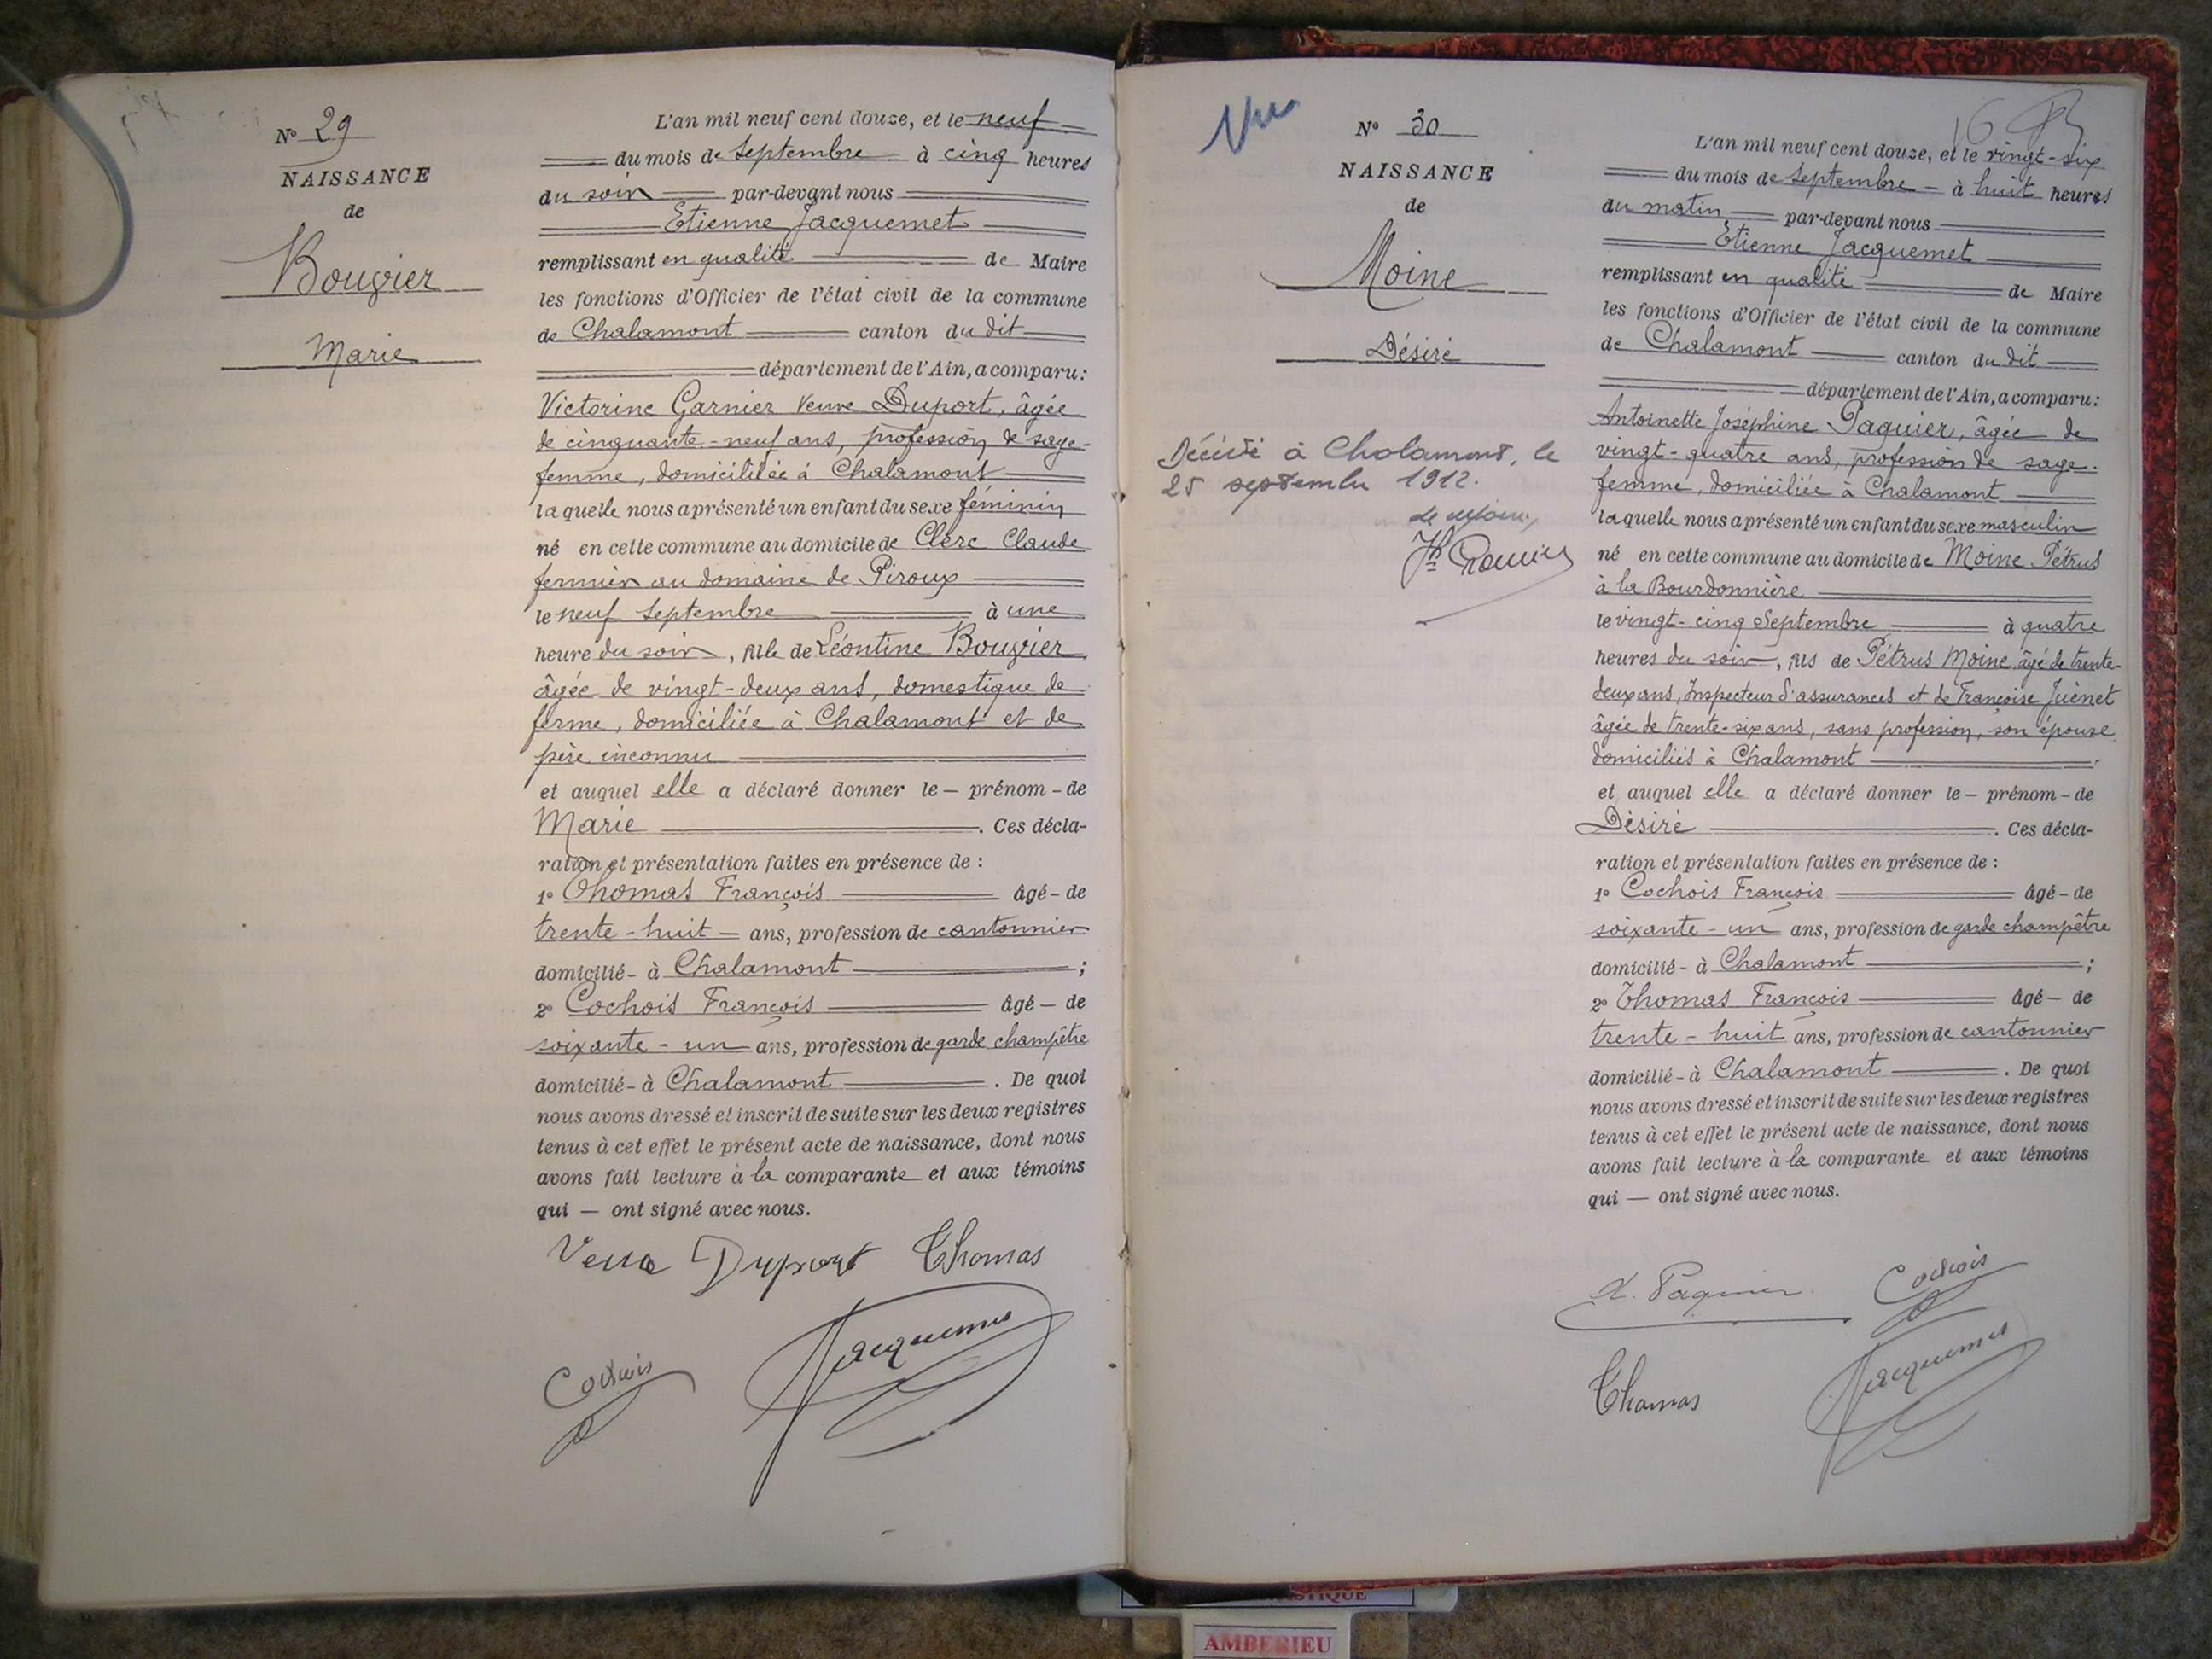 N° 29
NAISSANCE
de
Bouvier
Marie
L'an mil neuf cent douze, et le neuf
du mois de Septembre à cinq heures
du soir par-devant nous
Etienne Jacquemet
remplissant en qualité de Maire
les fonctions d'Officier de l'état civil de la commune
de Chalamont canton du dit
département de l'Ain, a comparu:
Victorine Garnier Veuve Duport, âgée
de cinquante-neuf ans, profession de sage-
femme, domiciliée à Chalamont
laquelle nous a présenté un enfant du sexe féminin
né en cette commune au domicile de Clerc Claude
fermier au domaine de Piroux
le neuf Septembre à une
heure du soir, fille de Léontine Bouvier,
âgée de vingt-deux ans, domestique de
ferme, domiciliée à Chalamont et de
père inconnu
et auquel elle a déclaré donner le - prénom - de
Marie . Ces décla-
ration et présentation faites en présence de :
1° Thomas François âgé - de
trente-huit - ans, profession de cantonnier
domicilié - à Chalamont ;
2° Cochois François âgé - de
soixante-un ans, profession de garde champêtre
domicilié - à Chalamont . De quoi
nous avons dressé et inscrit de suite sur les deux registres
tenus à cet effet le présent acte de naissance, dont nous
avons fait lecture à la comparante et aux témoins
qui — ont signé avec nous.
Veuve Duport Thomas
Cochois Jacquemet
Vu
N° 30
NAISSANCE
de
Moine
Désiré
Décédé à Chalamont, le
25 septembre 1912.
L'an mil neuf cent douze, et le vingt-six
du mois de Septembre - à huit heures
du matin par-devant nous
Etienne Jacquemet
remplissant en qualité de Maire
les fonctions d'Officier de l'état civil de la commune
de Chalamont canton du dit
département de l'Ain, a comparu:
Antoinette Joséphine Paquier, âgée de
vingt-quatre ans, profession de sage-
femme, domiciliée à Chalamont
laquelle nous a présenté un enfant du sexe masculin
né en cette commune au domicile de Moine Pétrus
à la Bourdonnière
le vingt-cinq Septembre à quatre
heures du soir, fils de Pétrus Moine, âgé de trente-
deux ans, Inspecteur d'assurances et de Françoise Juénet
âgée de trente-six ans, sans profession, son épouse,
domiciliés à Chalamont .
et auquel elle a déclaré donner le - prénom - de
Désiré . Ces décla-
ration et présentation faites en présence de :
1° Cochois François âgé - de
soixante-un ans, profession de garde champêtre
domicilié - à Chalamont ;
2° Thomas François âgé - de
trente-huit ans, profession de cantonnier
domicilié - à Chalamont . De quoi
nous avons dressé et inscrit de suite sur les deux registres
tenus à cet effet le présent acte de naissance, dont nous
avons fait lecture à la comparante et aux témoins
qui — ont signé avec nous.
A. Paquier Cochois
Thomas Jacquemet
AMBERIEU